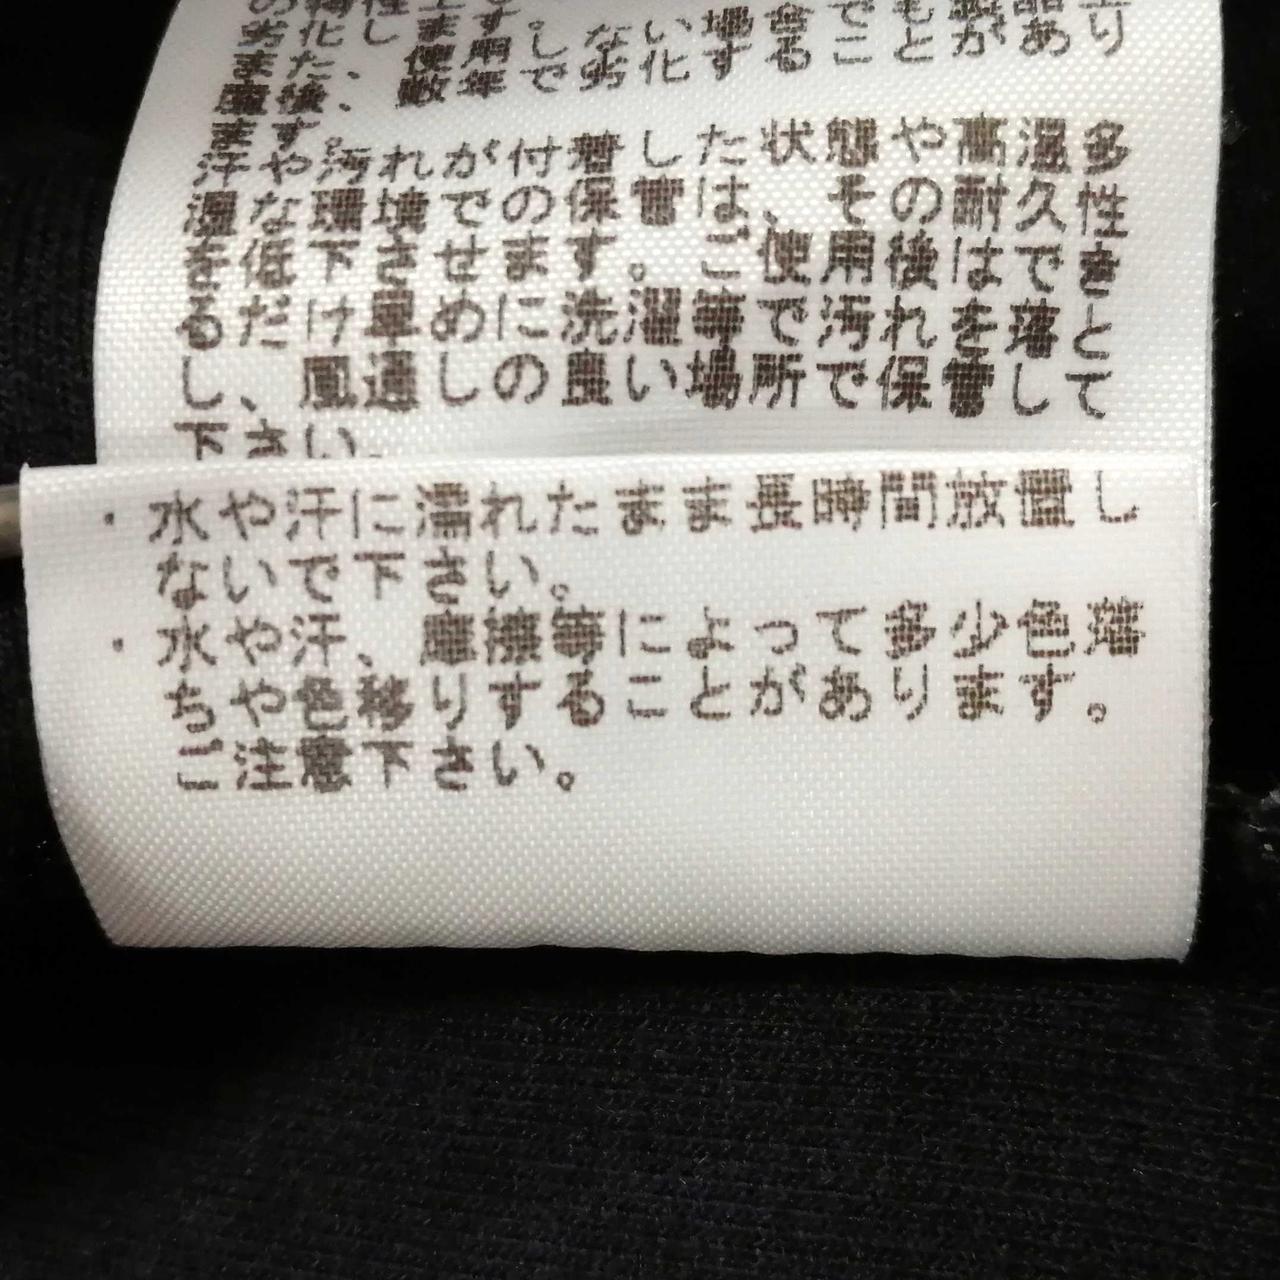 劣化します。
また、使用しない場合でも製品があり
後、数年で劣化することが
ます。
汗や汚れが付着した状態や高温多
湿な環境での保管は、その耐久性
を低下させます。ご使用後はでき
るだけ早めに洗濯等で汚れを落と
し、風通しの良い場所で保管して
下さい。
・水や汗に濡れたまま長時間放置し
ないで下さい。
・水や汗、摩擦等によって多少色落
ちや色移りすることがあります。
ご注意下さい。